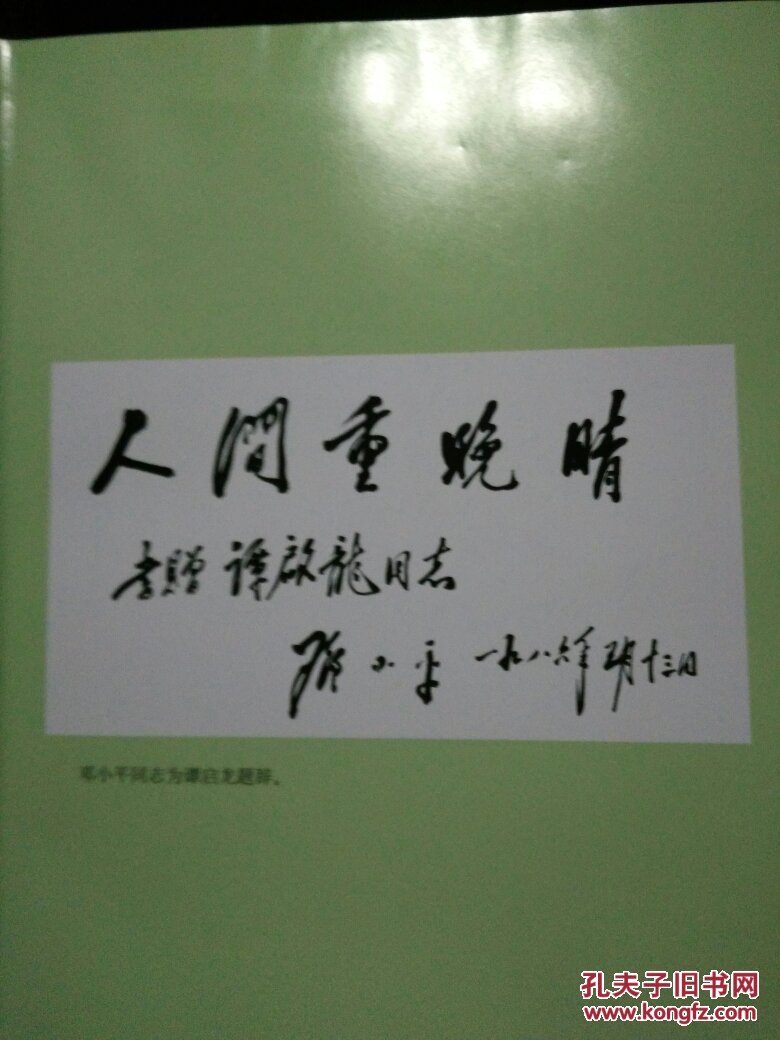 人間重晚晴
書贈 譚啟龍同志
鄧小平 一九八六年 二月十三日
邓小平同志为谭启龙题辞。
孔夫子旧书网
www.kongfz.com